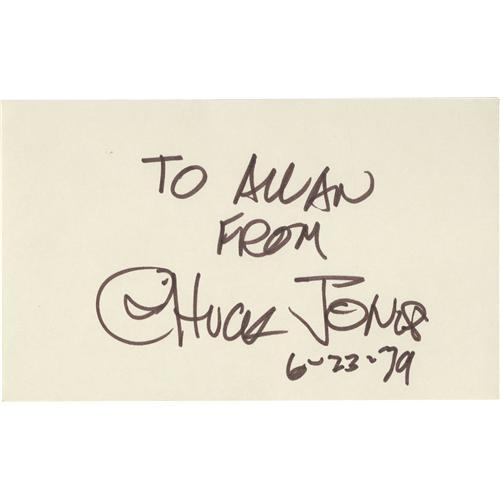 TO ALLAN
FROM
CHUCK JONES
6-23-79